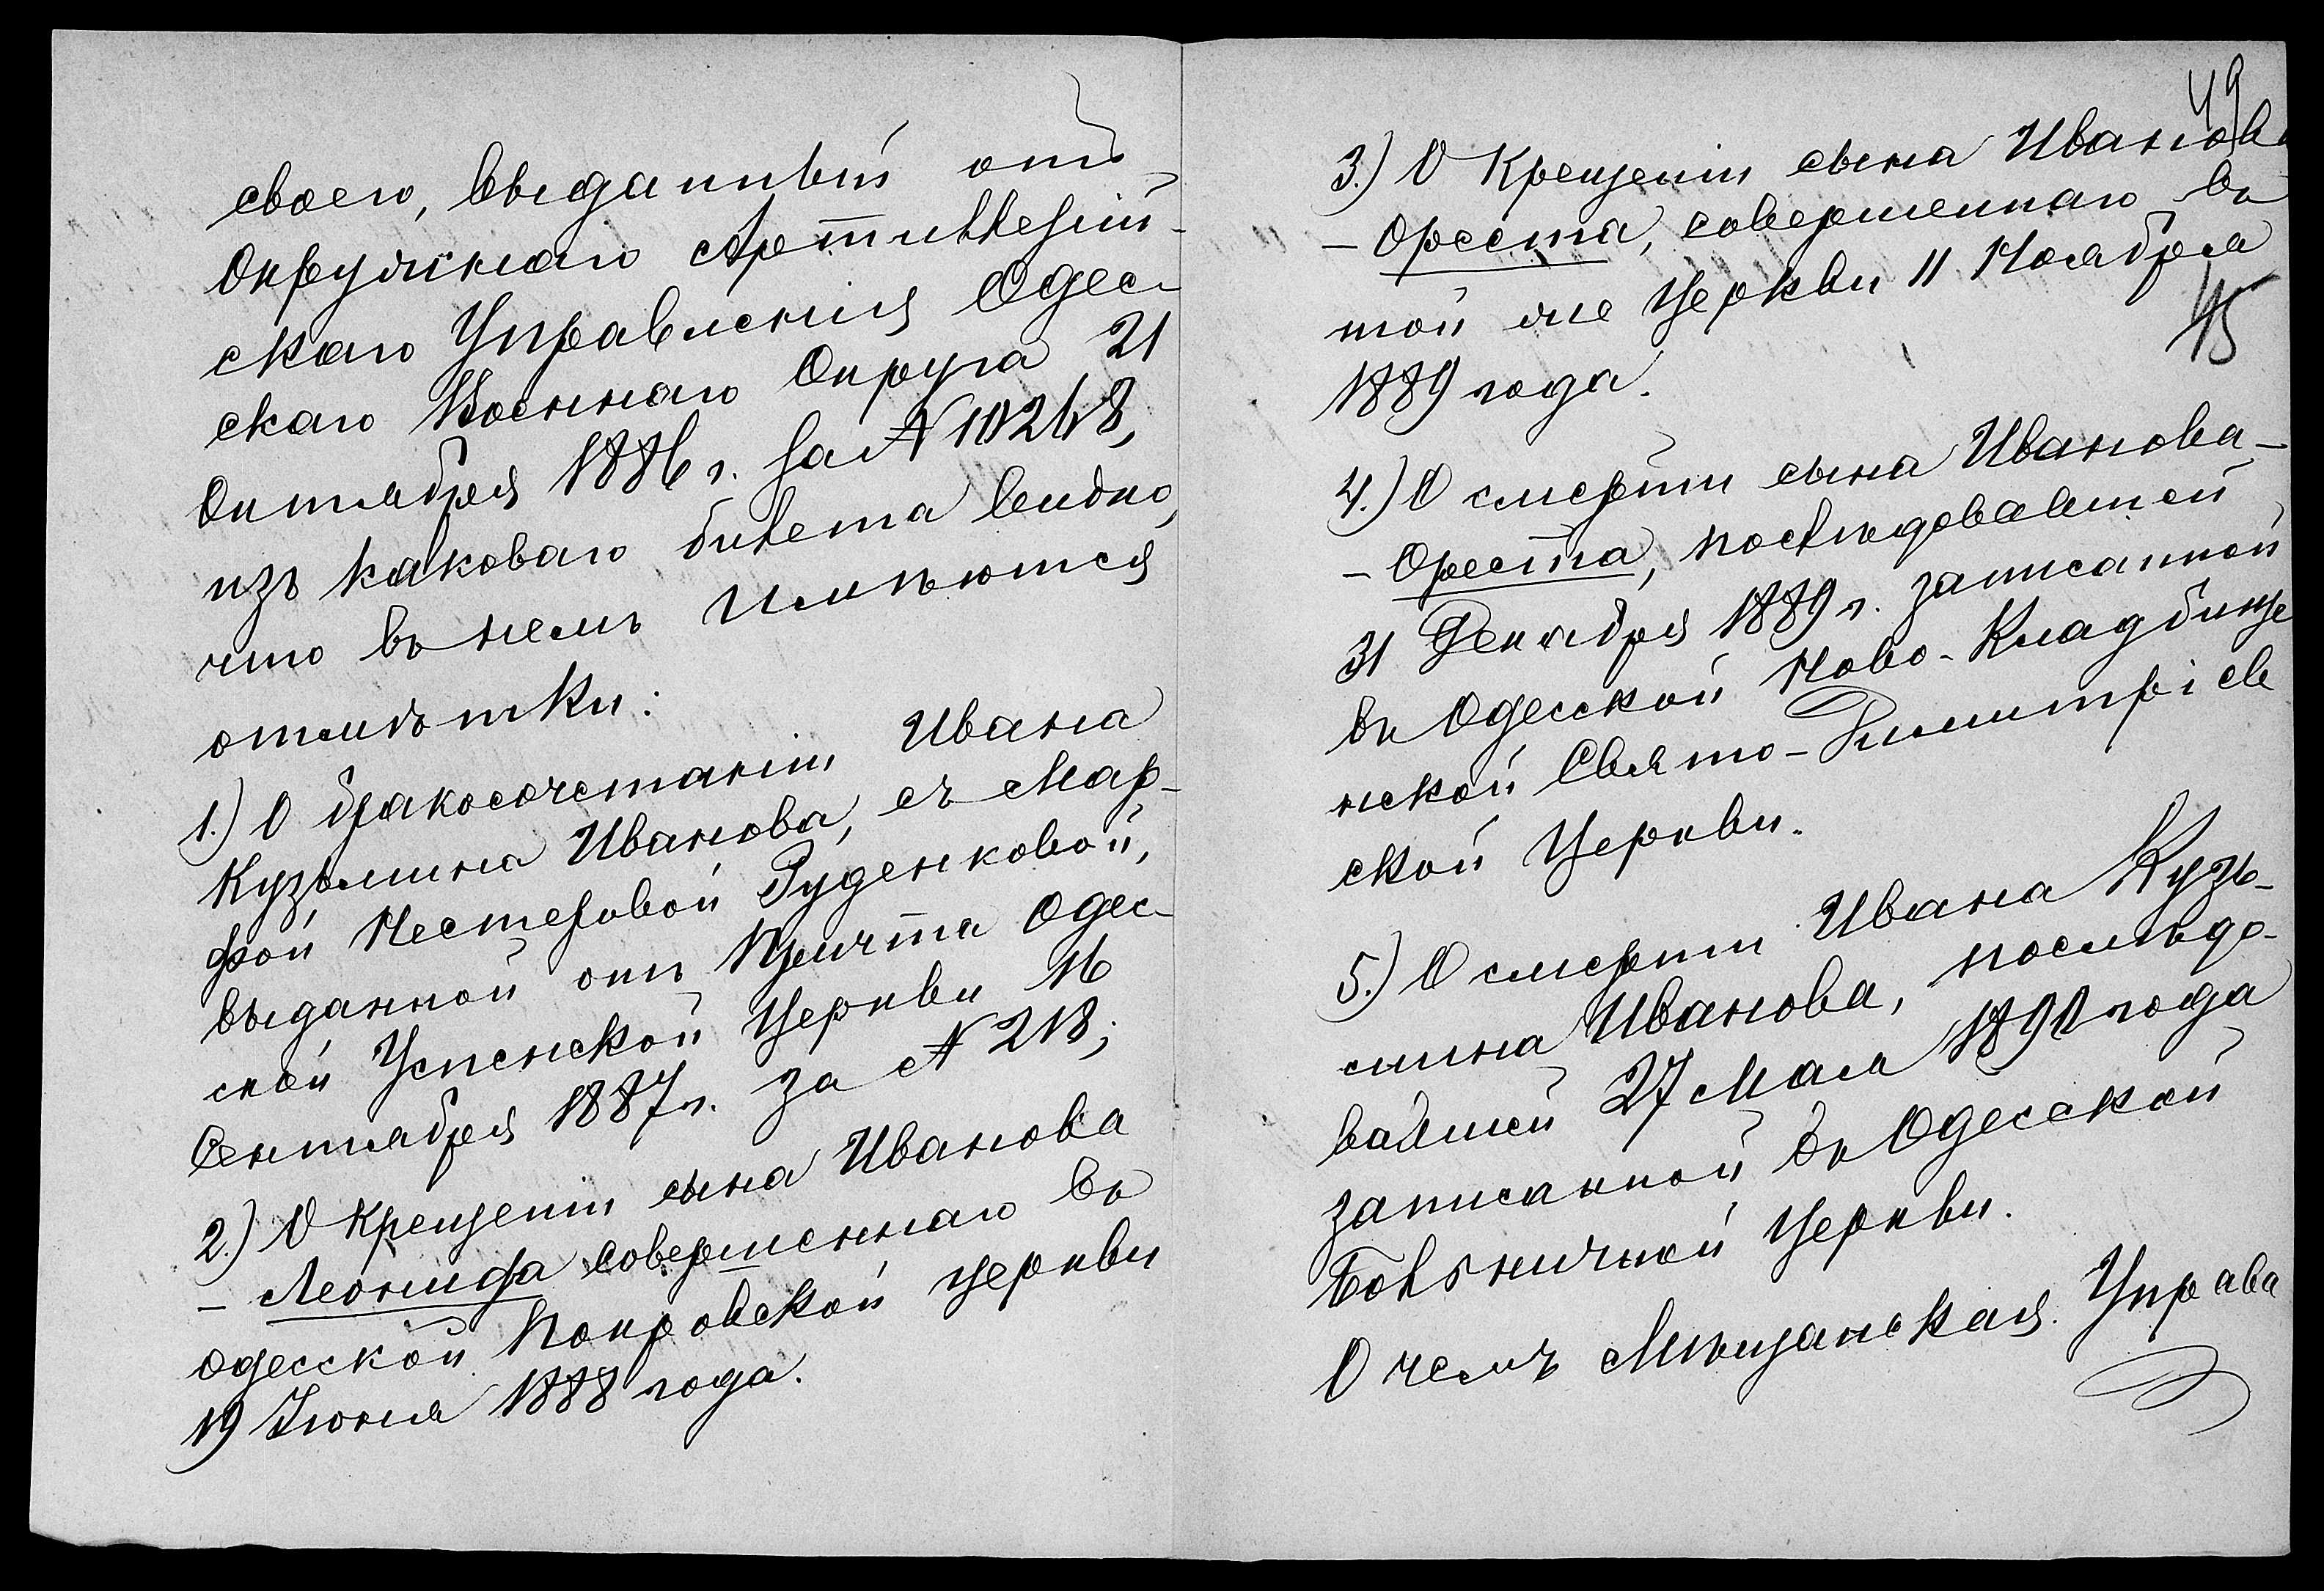 своего, выданный отъ
Окружнаго Артиллерій-
скаго Управленія Одес-
скаго Военнаго Округа 21
Октября 1886 г. за № 10268,
изъ каковаго билета видно,
что въ немъ имѣются
отмѣтки:
1.) О бракосочетаніи Ивана
Кузьмина Иванова, съ Мар-
фой Нестеровой Руденковой,
выданной отъ Причта Одес-
ской Успенской Церкви 16
Сентября 1887 г. за № 218;
2.) О Крещеніи сына Иванова
– Леонида совершеннаго въ
Одесской Покровской церкви
19 Іюня 1888 года.
49
3.) О Крещеніи сына Иванова
– Ореста, совершеннаго въ
той же Церкви 11 Ноября
45
1889 года.
4.) О смерти сына Иванова –
– Ореста, послѣдовавшей
31 Декабря 1889 г. записанной
въ Одесской Ново-Кладбище
нской Свято-Димитріев
ской Церкви.
5.) О смерти Ивана Кузь-
мина Иванова, послѣдо-
вавшей 27 Мая 1890 года
записанной въ Одесской
Больничной Церкви.
О чемъ Мѣщанская Управа